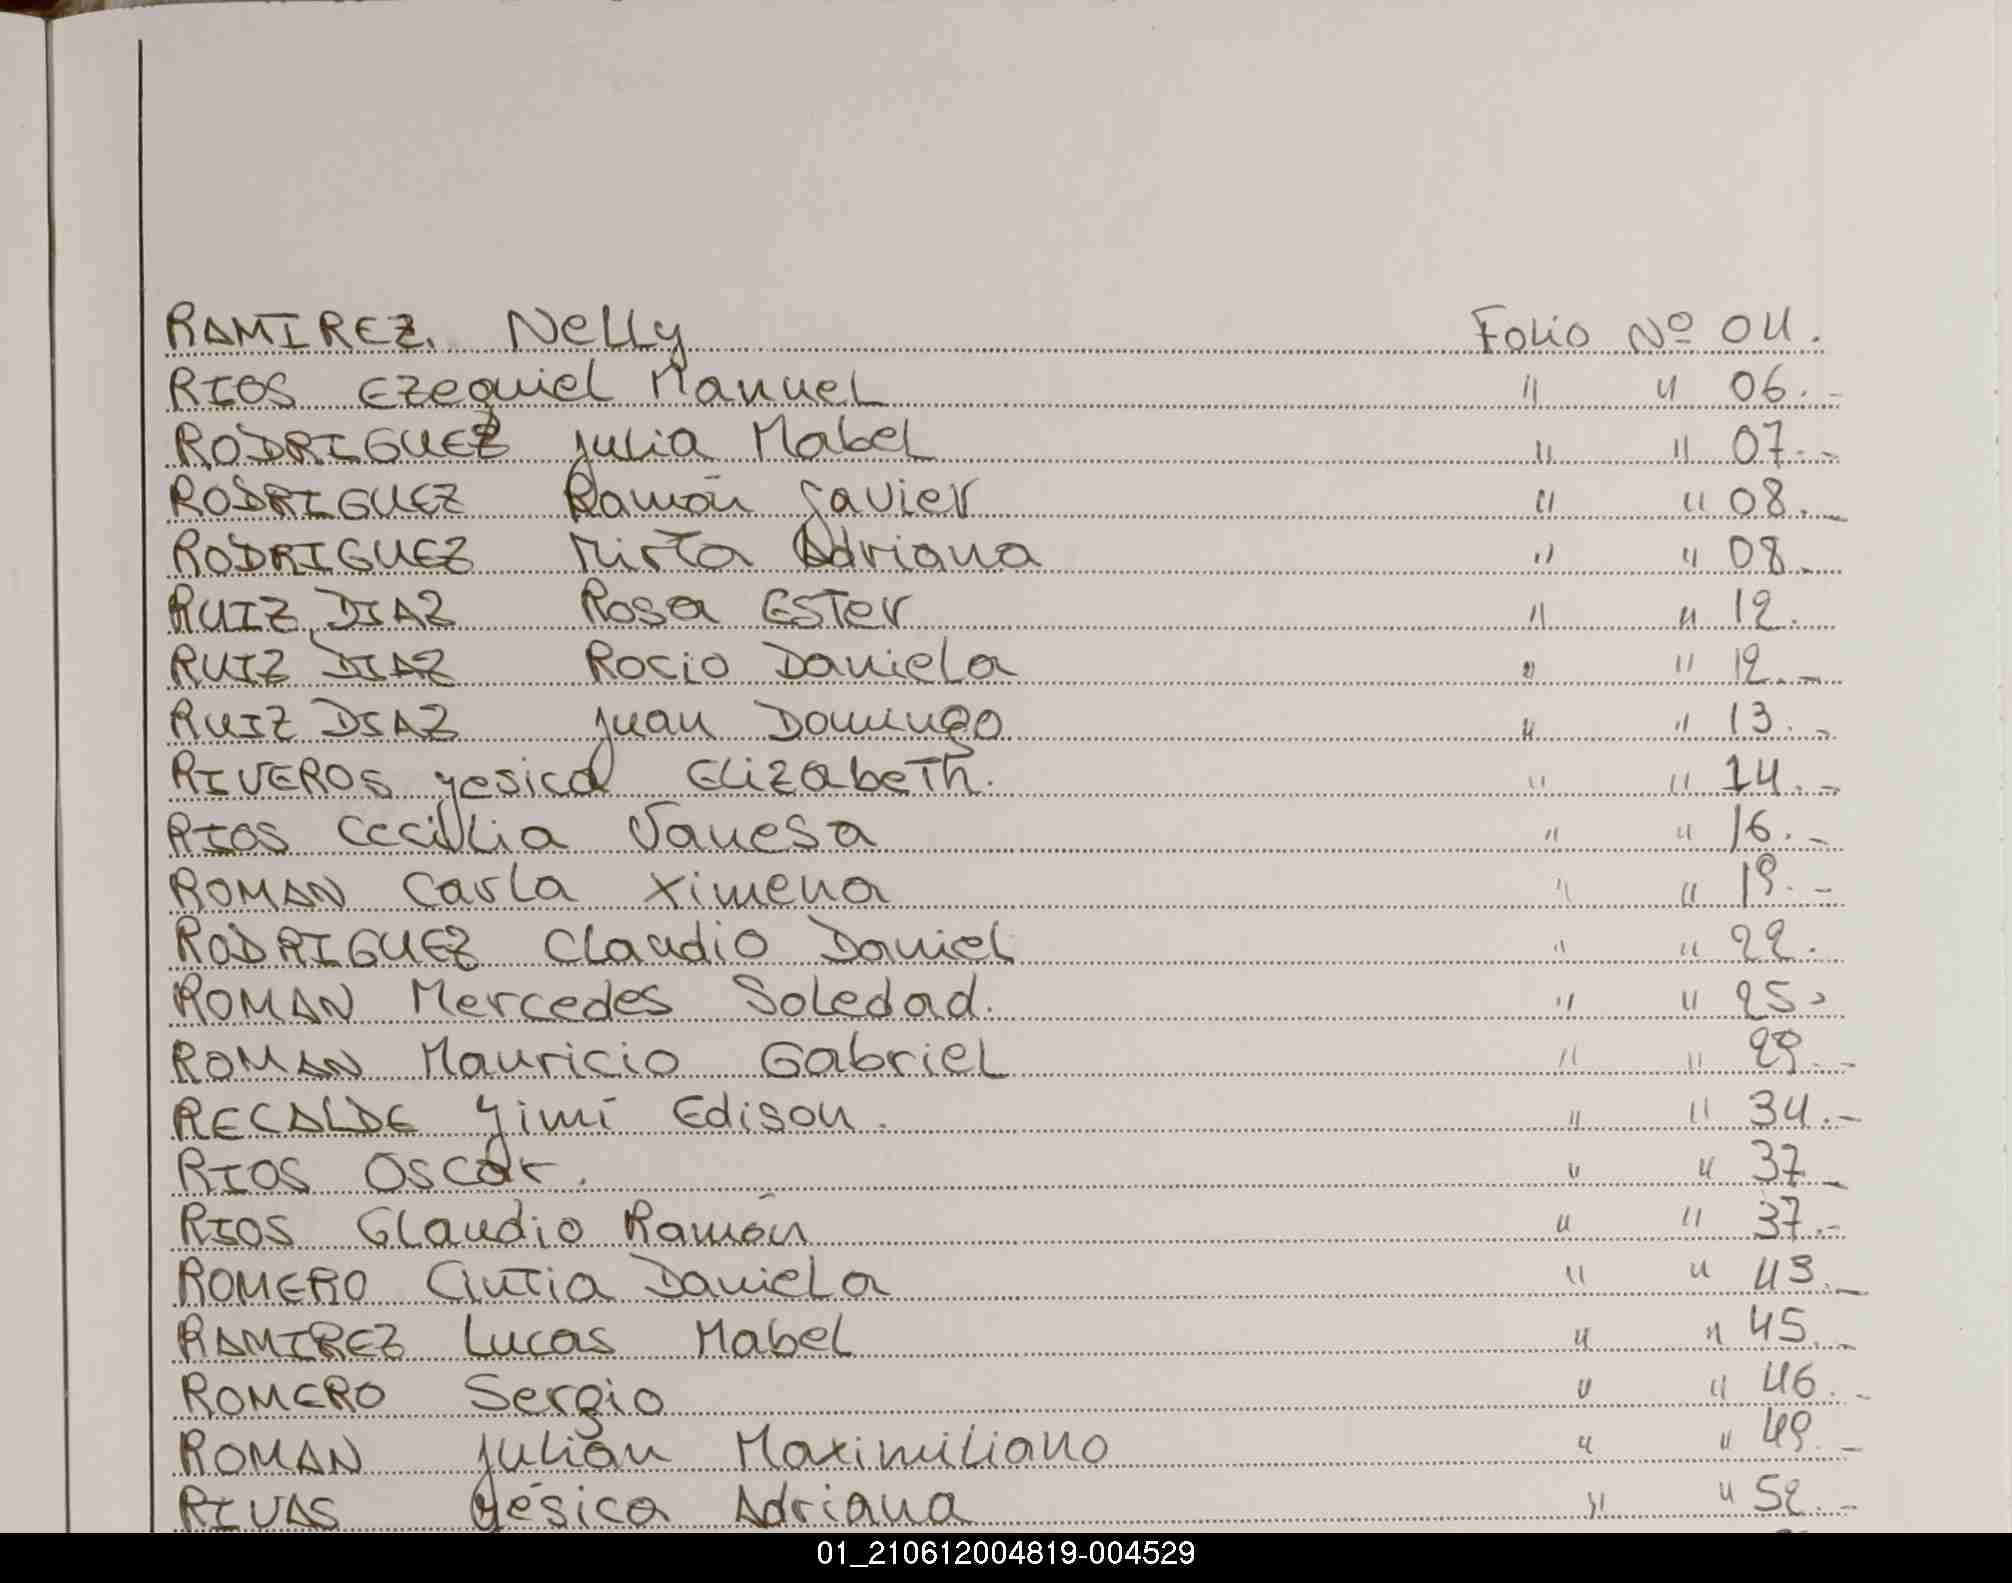 RAMIREZ. Nelly Folio Nº 04.
RIOS Ezequiel Manuel " " 06.-
RODRIGUEZ Julia Mabel " " 07.-
RODRIGUEZ Ramón Javier " " 08.-
RODRIGUEZ Mirta Adriana " " 08.
RUIZ DIAZ Rosa Ester " " 12.
RUIZ DIAZ Rocio Daniela " " 12.-
RUIZ DIAZ Juan Domingo " " 13.-
RIVEROS Yesica Elizabeth. " " 14.-
RIOS Cecilia Vanesa " " 16.-
ROMAN Carla Ximena " " 19.-
RODRIGUEZ Claudio Daniel " " 22.
ROMAN Mercedes Soledad. " " 25.
ROMAN Mauricio Gabriel " " 29.-
RECALDE Yimi Edison. " " 34.-
RIOS Oscar. " " 37-
RIOS Claudio Ramón " " 37.-
ROMERO Cintia Daniela " " 43.-
RAMIREZ Lucas Mabel " " 45.-
ROMERO Sergio " " 46.-
ROMAN Julián Maximiliano " " 49.-
RIVAS Yésica Adriana " " 52.-
01_210612004819-004529